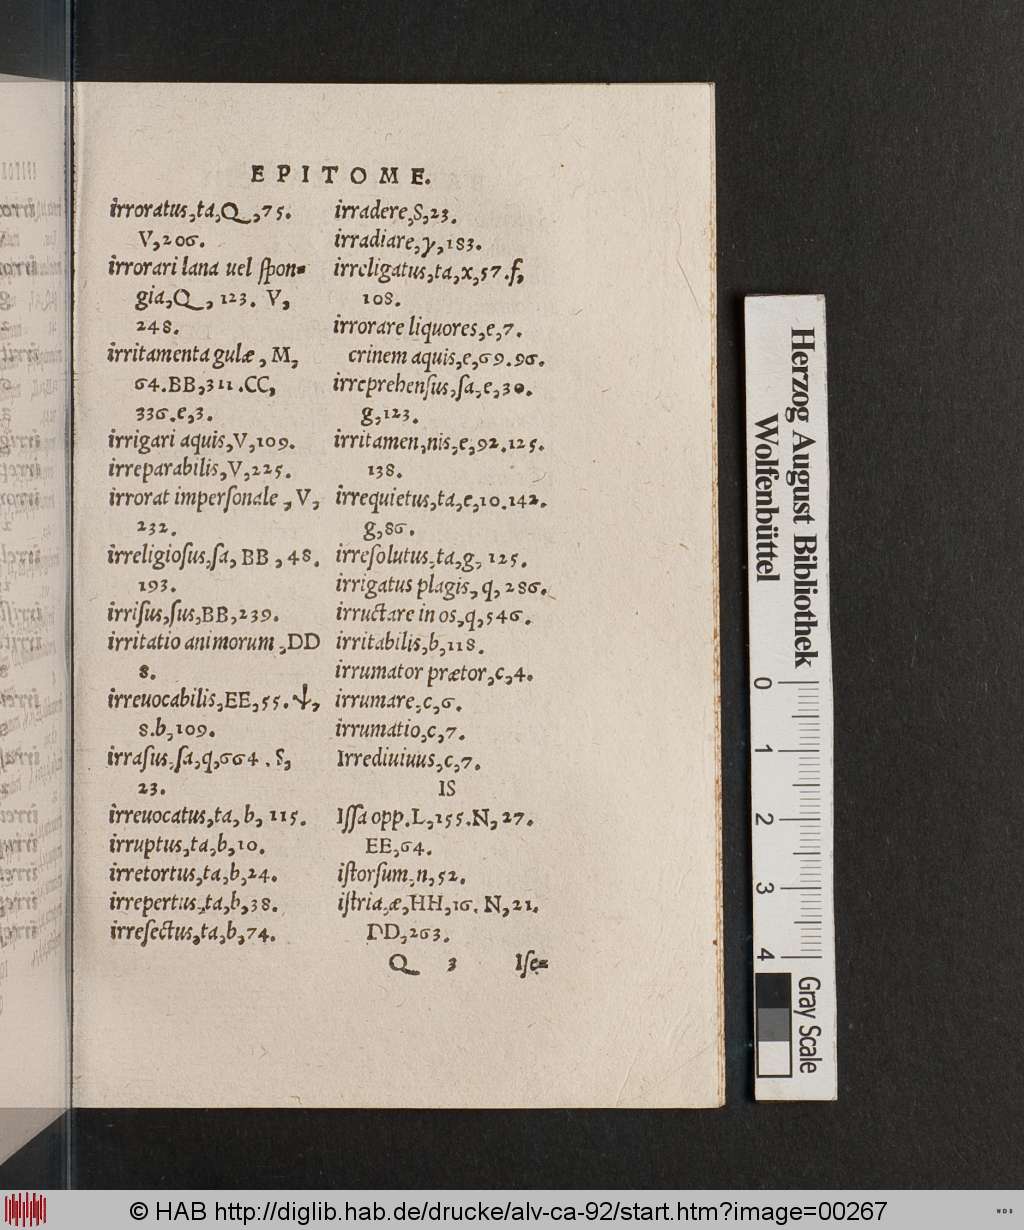 EPITOME.
irroratus,ta,Q,75.
V,206.
irrorari lana uel ſpon=
gia,Q, 123. V,
248.
irritamenta gulæ, M,
64.BB,311.CC,
336.e,3.
irrigari aquis,V,109.
irreparabilis,V,225.
irrorat imperſonale, V,
232.
irreligioſus,ſa, BB, 48.
193.
irriſus,ſus,BB,239.
irritatio animorum,DD
8.
irreuocabilis,EE,55.ψ,
8.b,109.
irraſus,ſa,q,664. S,
23.
irreuocatus,ta, b, 115.
irruptus,ta,b,10.
irretortus,ta,b,24.
irrepertus,ta,b,38.
irreſectus,ta,b,74.
irradere,S,23.
irradiare,y,183.
irreligatus,ta,x,57.f,
108.
irrorare liquores,e,7.
crinem aquis,e,69.96.
irreprehenſus,ſa,e,30.
g,123.
irritamen,nis,e,92.125.
138.
irrequietus,ta,e,10.142.
g,86.
irreſolutus,ta,g, 125.
irrigatus plagis, q, 286.
irructare in os,q,546.
irritabilis,b,118.
irrumator prætor,c,4.
irrumare,c,6.
irrumatio,c,7.
Irrediuiuus,c,7.
IS
Iſſa opp.L,155.N,27.
EE,64.
iſtorſum,n,52.
iſtria,æ,HH,16. N,21.
DD,263.
Q 3 Iſe=
Herzog August Bibliothek
Wolfenbüttel
0 1 2 3 4
Gray Scale
© HAB http://diglib.hab.de/drucke/alv-ca-92/start.htm?image=00267
WDB